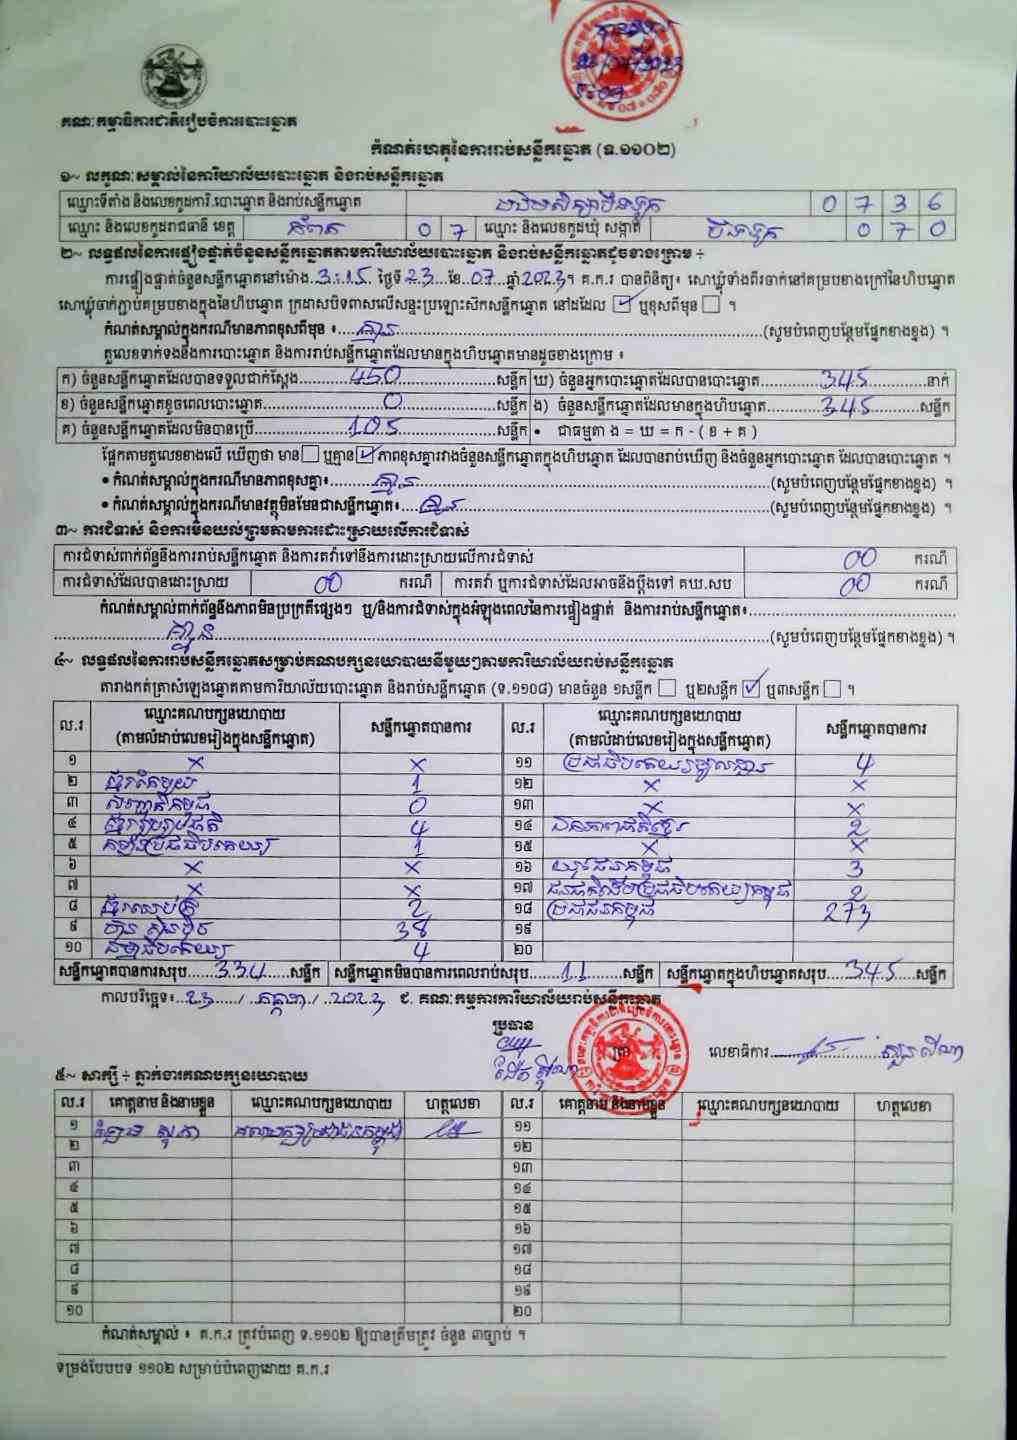 គណៈកម្មាធិការជាតិរៀបចំការបោះឆ្នោត
កំណត់ហេតុនៃការរាប់សន្លឹកឆ្នោត (ទ.១១០២)
១~ លក្ខណៈសម្គាល់នៃការិយាល័យបោះឆ្នោត និងរាប់សន្លឹកឆ្នោត
ឈ្មោះទីតាំង និងលេខកូដការិ.បោះឆ្នោត និងរាប់សន្លឹកឆ្នោត 0 7 3 6
ឈ្មោះ និងលេខកូដរាជធានី ខេត្ត កំពត 0 7 ឈ្មោះ និងលេខកូដឃុំ សង្កាត់ 0 7 0
២~ លទ្ធផលនៃការផ្ទៀងផ្ទាត់ចំនួនសន្លឹកឆ្នោតតាមការិយាល័យបោះឆ្នោត និងរាប់សន្លឹកឆ្នោតដូចខាងក្រោម ÷
ការផ្ទៀងផ្ទាត់ចំនួនសន្លឹកឆ្នោតនៅម៉ោង 3:15 ថ្ងៃទី 23 ខែ 07 ឆ្នាំ 2023។ គ.ក.រ បានពិនិត្យ៖ សោឃ្លុំទាំងពីរចាក់នៅគម្របខាងក្រៅនៃហិបឆ្នោត
សោឃ្លុំចាក់ភ្ជាប់គម្របខាងក្នុងនៃហិបឆ្នោត ក្រដាសបិទពាសលើសន្ទះប្រឡោះសឹកសន្លឹកឆ្នោត នៅដដែល ☑ ឬខុសពីមុន ☐ ។
កំណត់សម្គាល់ក្នុងករណីមានភាពខុសពីមុន ៖ គ្មាន (សូមបំពេញបន្ថែមផ្នែកខាងខ្នង) ។
តួលេខទាក់ទងនឹងការបោះឆ្នោត និងការរាប់សន្លឹកឆ្នោតដែលមានក្នុងហិបឆ្នោតមានដូចខាងក្រោម ៖
ក) ចំនួនសន្លឹកឆ្នោតដែលបានទទួលជាក់ស្តែង 450 សន្លឹក ឃ) ចំនួនអ្នកបោះឆ្នោតដែលបានបោះឆ្នោត 345 នាក់
ខ) ចំនួនសន្លឹកឆ្នោតខូចពេលបោះឆ្នោត 0 សន្លឹក ង) ចំនួនសន្លឹកឆ្នោតដែលមានក្នុងហិបឆ្នោត 345 សន្លឹក
គ) ចំនួនសន្លឹកឆ្នោតដែលមិនបានប្រើ 105 សន្លឹក • ជាធម្មតា ង = ឃ = ក - ( ខ + គ )
ផ្អែកតាមតួលេខខាងលើ ឃើញថា មាន ☐ ឬគ្មាន ☑ ភាពខុសគ្នារវាងចំនួនសន្លឹកឆ្នោតក្នុងហិបឆ្នោត ដែលបានរាប់ឃើញ និងចំនួនអ្នកបោះឆ្នោត ដែលបានបោះឆ្នោត ។
• កំណត់សម្គាល់ក្នុងករណីមានភាពខុសគ្នា៖ គ្មាន (សូមបំពេញបន្ថែមផ្នែកខាងខ្នង) ។
• កំណត់សម្គាល់ក្នុងករណីមានវត្ថុមិនមែនជាសន្លឹកឆ្នោត៖ គ្មាន (សូមបំពេញបន្ថែមផ្នែកខាងខ្នង) ។
៣~ ការជំទាស់ និងការមិនយល់ព្រមតាមការដោះស្រាយលើការជំទាស់
ការជំទាស់ពាក់ព័ន្ធនឹងការរាប់សន្លឹកឆ្នោត និងការតវ៉ាទៅនឹងការដោះស្រាយលើការជំទាស់ 00 ករណី
ការជំទាស់ដែលបានដោះស្រាយ 00 ករណី ការតវ៉ា ឬការជំទាស់ដែលអាចនឹងប្តឹងទៅ គឃ.សប 00 ករណី
កំណត់សម្គាល់ពាក់ព័ន្ធនឹងភាពមិនប្រក្រតីផ្សេងៗ ឬ/និងការជំទាស់ក្នុងអំឡុងពេលនៃការផ្ទៀងផ្ទាត់ និងការរាប់សន្លឹកឆ្នោត៖
គ្មាន (សូមបំពេញបន្ថែមផ្នែកខាងខ្នង) ។
៤~ លទ្ធផលនៃការរាប់សន្លឹកឆ្នោតសម្រាប់គណបក្សនយោបាយនីមួយៗតាមការិយាល័យរាប់សន្លឹកឆ្នោត
តារាងកត់ត្រាសំឡេងឆ្នោតតាមការិយាល័យបោះឆ្នោត និងរាប់សន្លឹកឆ្នោត (ទ.១១០៨) មានចំនួន ១សន្លឹក ☐ ឬ២សន្លឹក ☑ ឬ៣សន្លឹក ☐ ។
ល.រ ឈ្មោះគណបក្សនយោបាយ (តាមលំដាប់លេខរៀងក្នុងសន្លឹកឆ្នោត) សន្លឹកឆ្នោតបានការ ល.រ ឈ្មោះគណបក្សនយោបាយ (តាមលំដាប់លេខរៀងក្នុងសន្លឹកឆ្នោត) សន្លឹកឆ្នោតបានការ
១ × × ១១ 4
២ 1 ១២ × ×
៣ 0 ១៣ × ×
៤ 4 ១៤ ឯកភាពជាតិខ្មែរ 2
៥ កម្ពុជា 1 ១៥ × ×
៦ × × ១៦ 3
៧ × × ១៧ 2
៨ 2 ១៨ ប្រជាជនកម្ពុជា 273
៩ ហ៊្វុនស៊ិនប៉ិច 38 ១៩
១០ ធម្មាធិបតេយ្យ 4 ២០
សន្លឹកឆ្នោតបានការសរុប 334 សន្លឹក សន្លឹកឆ្នោតមិនបានការពេលរាប់សរុប 11 សន្លឹក សន្លឹកឆ្នោតក្នុងហិបឆ្នោតសរុប 345 សន្លឹក
កាលបរិច្ឆេទ៖ 23 / កក្កដា / 2023 ជ. គណៈកម្មការការិយាល័យរាប់សន្លឹកឆ្នោត
ប្រធាន
លេខាធិការ
៥~ សាក្សី ÷ ភ្នាក់ងារគណបក្សនយោបាយ
ល.រ គោត្តនាម និងនាមខ្លួន ឈ្មោះគណបក្សនយោបាយ ហត្ថលេខា ល.រ គោត្តនាម និងនាមខ្លួន ឈ្មោះគណបក្សនយោបាយ ហត្ថលេខា
១ គណបក្សប្រជាជនកម្ពុជា ១១
២ ១២
៣ ១៣
៤ ១៤
៥ ១៥
៦ ១៦
៧ ១៧
៨ ១៨
៩ ១៩
១០ ២០
កំណត់សម្គាល់ ៖ គ.ក.រ ត្រូវបំពេញ ទ.១១០២ ឱ្យបានត្រឹមត្រូវ ចំនួន ៣ច្បាប់ ។
ទម្រង់បែបបទ ១១០២ សម្រាប់បំពេញដោយ គ.ក.រ